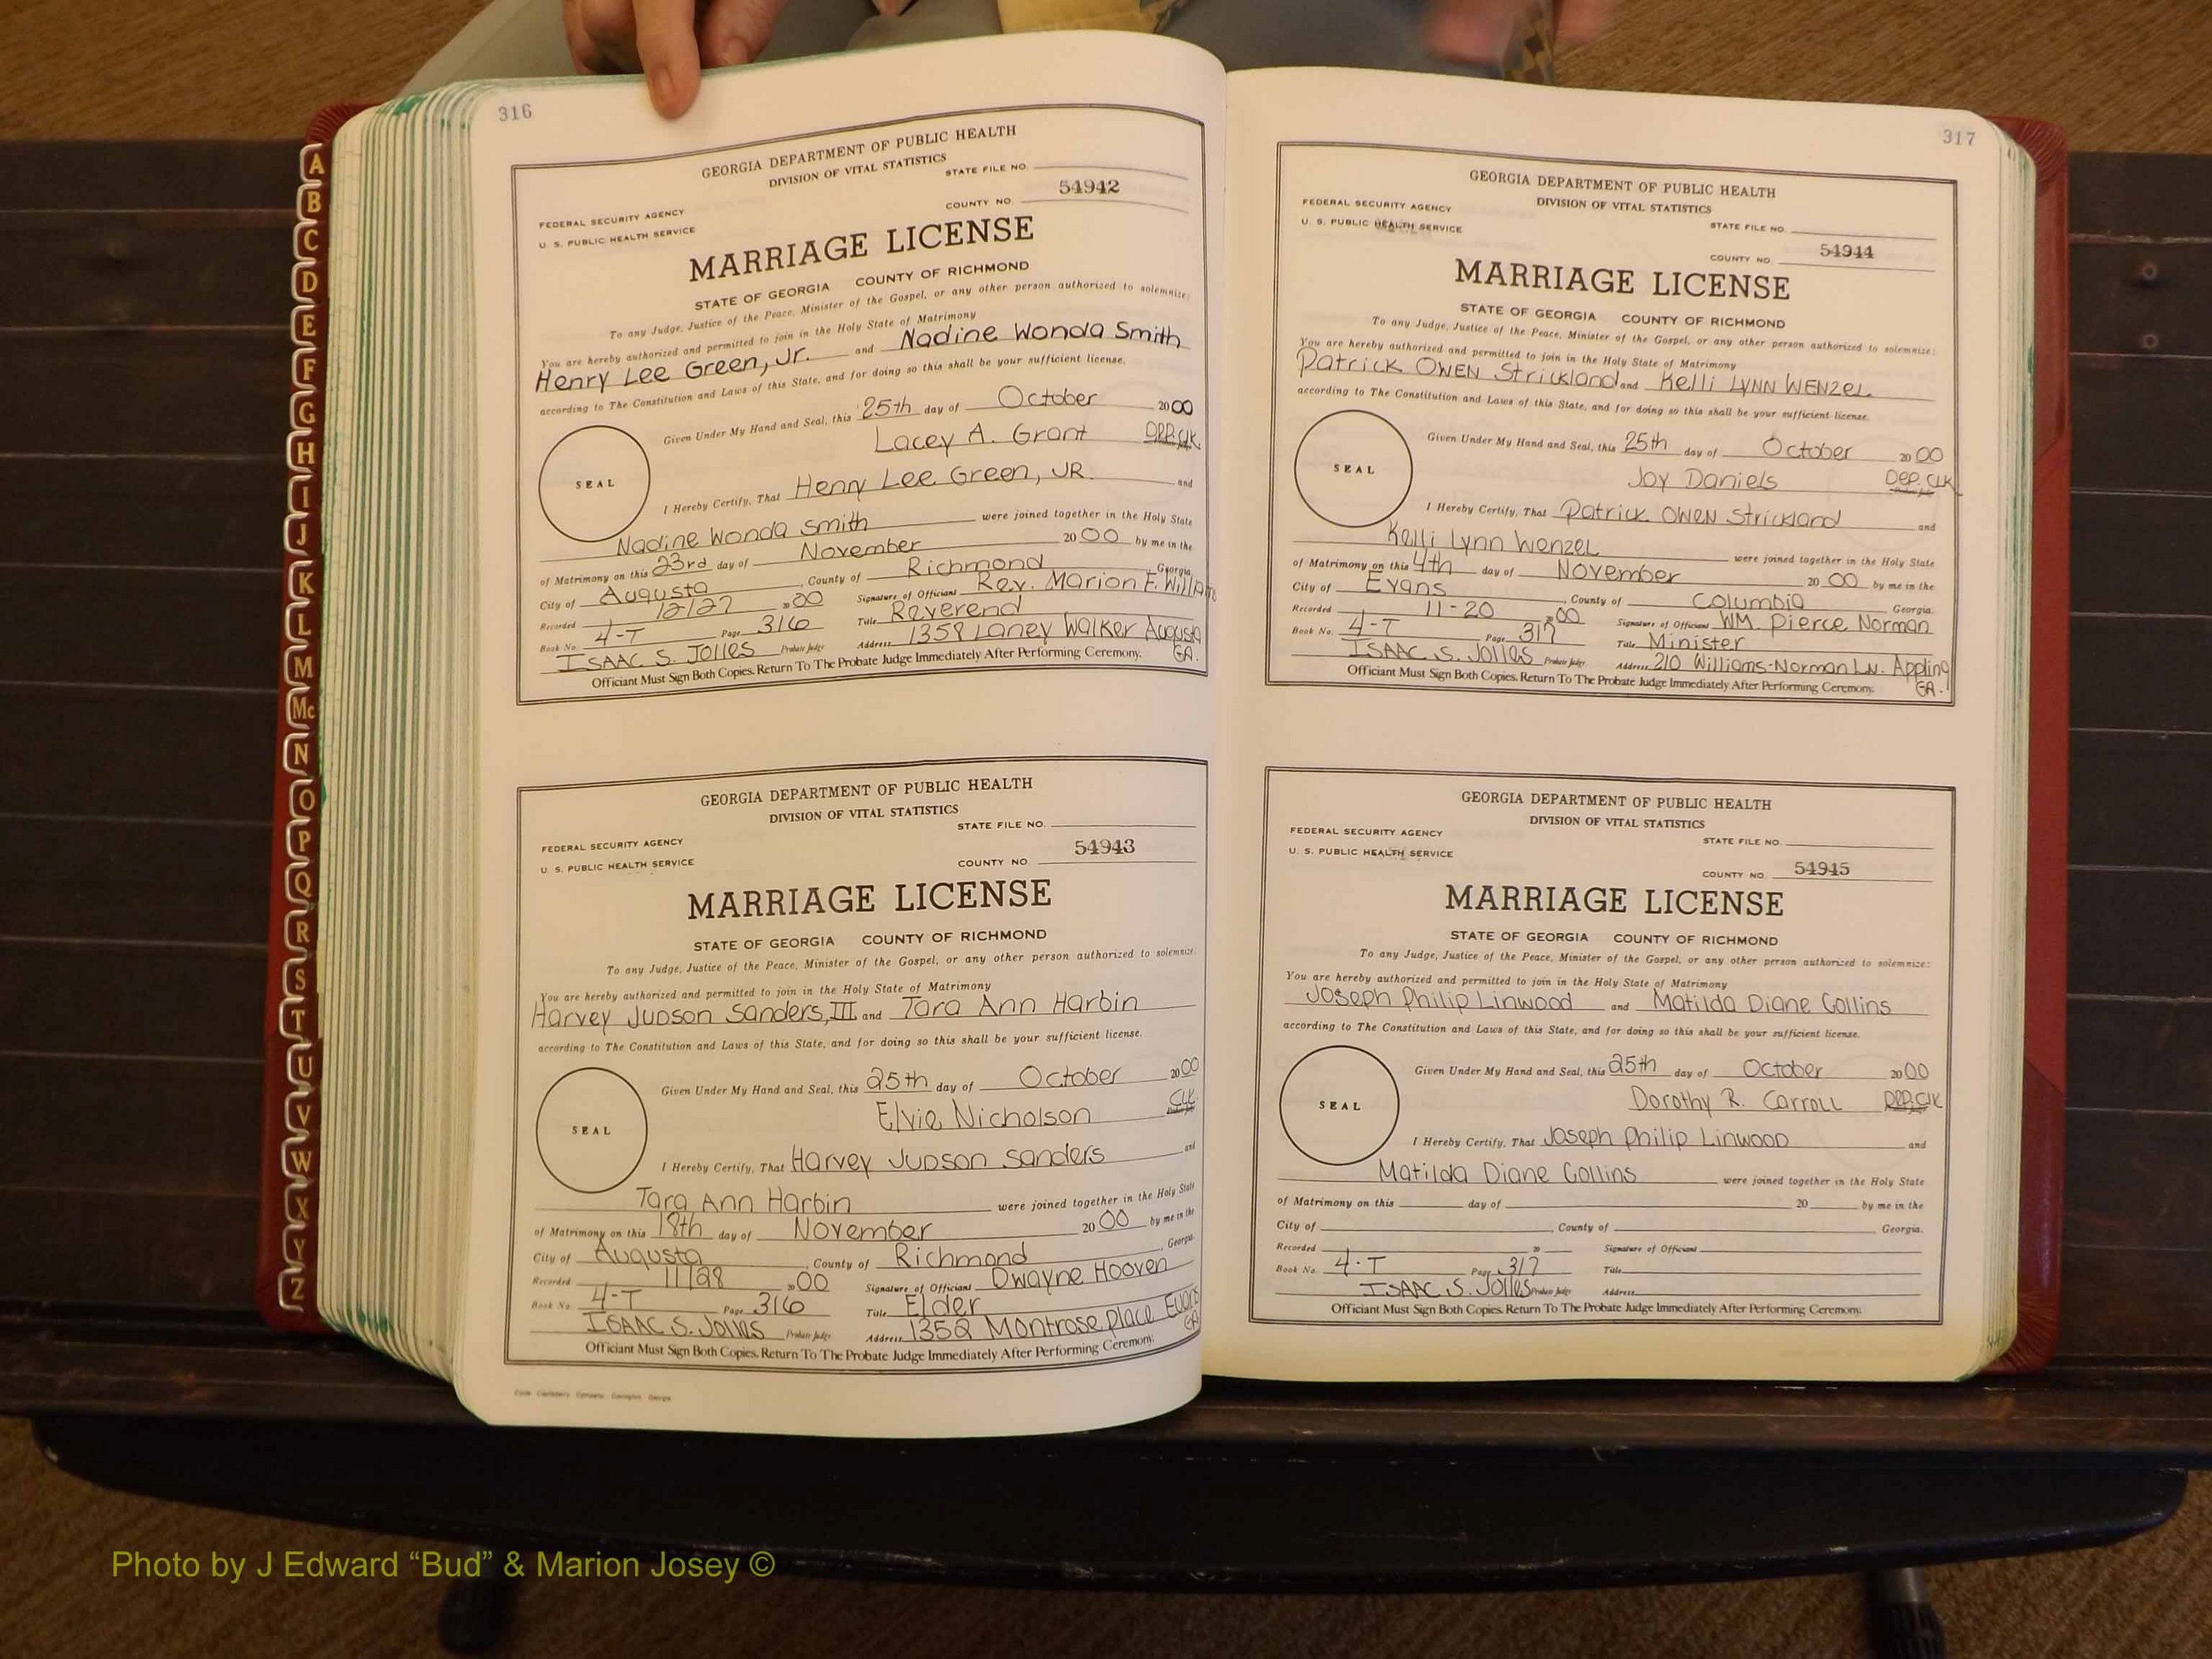 316
GEORGIA DEPARTMENT OF PUBLIC HEALTH
DIVISION OF VITAL STATISTICS
STATE FILE NO.
FEDERAL SECURITY AGENCY
U. S. PUBLIC HEALTH SERVICE
COUNTY NO. 54942
MARRIAGE LICENSE
STATE OF GEORGIA COUNTY OF RICHMOND
To any Judge, Justice of the Peace, Minister of the Gospel, or any other person authorized to solemnize:
You are hereby authorized and permitted to join in the Holy State of Matrimony
Henry Lee Green, Jr. and Nadine Wonda Smith
according to The Constitution and Laws of this State, and for doing so this shall be your sufficient license.
Given Under My Hand and Seal, this 25th day of October 2000
Lacey A. Grant Dep. Clk
SEAL
I Hereby Certify, That Henry Lee Green, JR. and
Nadine Wonda Smith were joined together in the Holy State
of Matrimony on this 23rd day of November 20 00 by me in the
City of Augusta, County of Richmond, Georgia.
Recorded 12/27 20 00 Signature of Officiant Rev. Marion F. Williams
Book No. 4-T Page 316 Title Reverend
ISAAC S. Jolles Probate Judge Address 1358 Laney Walker Augusta GA.
Officiant Must Sign Both Copies. Return To The Probate Judge Immediately After Performing Ceremony.
GEORGIA DEPARTMENT OF PUBLIC HEALTH
DIVISION OF VITAL STATISTICS
STATE FILE NO.
FEDERAL SECURITY AGENCY
U. S. PUBLIC HEALTH SERVICE
COUNTY NO. 54943
MARRIAGE LICENSE
STATE OF GEORGIA COUNTY OF RICHMOND
To any Judge, Justice of the Peace, Minister of the Gospel, or any other person authorized to solemnize:
You are hereby authorized and permitted to join in the Holy State of Matrimony
Harvey Judson Sanders, III and Tara Ann Harbin
according to The Constitution and Laws of this State, and for doing so this shall be your sufficient license.
Given Under My Hand and Seal, this 25th day of October 20 00
Elvie Nicholson Clk.
SEAL
I Hereby Certify, That Harvey Judson Sanders and
Tara Ann Harbin were joined together in the Holy State
of Matrimony on this 18th day of November 20 00 by me in the
City of Augusta, County of Richmond, Georgia
Recorded 11/28 20 00 Signature of Officiant Dwayne Hooven
Book No. 4-T Page 316 Title Elder
ISAAC S. Jolles Probate Judge Address 1352 Montrose Place Evans GA
Officiant Must Sign Both Copies. Return To The Probate Judge Immediately After Performing Ceremony.
317
GEORGIA DEPARTMENT OF PUBLIC HEALTH
DIVISION OF VITAL STATISTICS
FEDERAL SECURITY AGENCY
U. S. PUBLIC HEALTH SERVICE
STATE FILE NO.
COUNTY NO. 54944
MARRIAGE LICENSE
STATE OF GEORGIA COUNTY OF RICHMOND
To any Judge, Justice of the Peace, Minister of the Gospel, or any other person authorized to solemnize:
You are hereby authorized and permitted to join in the Holy State of Matrimony
Patrick OWEN Strickland and Kelli LYNN WENZEL
according to The Constitution and Laws of this State, and for doing so this shall be your sufficient license.
Given Under My Hand and Seal, this 25th day of October 20 00
Joy Daniels Dep. Clk
SEAL
I Hereby Certify, That Patrick OWEN Strickland and
Kelli Lynn Wenzel were joined together in the Holy State
of Matrimony on this 4th day of November 20 00 by me in the
City of Evans, County of Columbia, Georgia.
Recorded 11-20 20 00 Signature of Officiant WM. Pierce Norman
Book No. 4-T Page 317 Title Minister
ISAAC S. Jolles Probate Judge Address 210 Williams-Norman LN. Appling GA.
Officiant Must Sign Both Copies. Return To The Probate Judge Immediately After Performing Ceremony.
GEORGIA DEPARTMENT OF PUBLIC HEALTH
DIVISION OF VITAL STATISTICS
FEDERAL SECURITY AGENCY
U. S. PUBLIC HEALTH SERVICE
STATE FILE NO.
COUNTY NO. 54945
MARRIAGE LICENSE
STATE OF GEORGIA COUNTY OF RICHMOND
To any Judge, Justice of the Peace, Minister of the Gospel, or any other person authorized to solemnize:
You are hereby authorized and permitted to join in the Holy State of Matrimony
Joseph Philip Linwood and Matilda Diane Collins
according to The Constitution and Laws of this State, and for doing so this shall be your sufficient license.
Given Under My Hand and Seal, this 25th day of October 20 00
Dorothy R. Carroll Dep. Clk
SEAL
I Hereby Certify, That Joseph Philip Linwood and
Matilda Diane Collins were joined together in the Holy State
of Matrimony on this day of 20 by me in the
City of , County of Georgia.
Recorded 20 Signature of Officiant
Book No. 4-T Page 317 Title
ISAAC S. Jolles Probate Judge Address
Officiant Must Sign Both Copies. Return To The Probate Judge Immediately After Performing Ceremony.
A
B
C
D
E
F
G
H
I
J
K
L
M
Mc
N
O
P
Q
R
S
T
U
V
W
X
Y
Z
Photo by J Edward “Bud” & Marion Josey ©